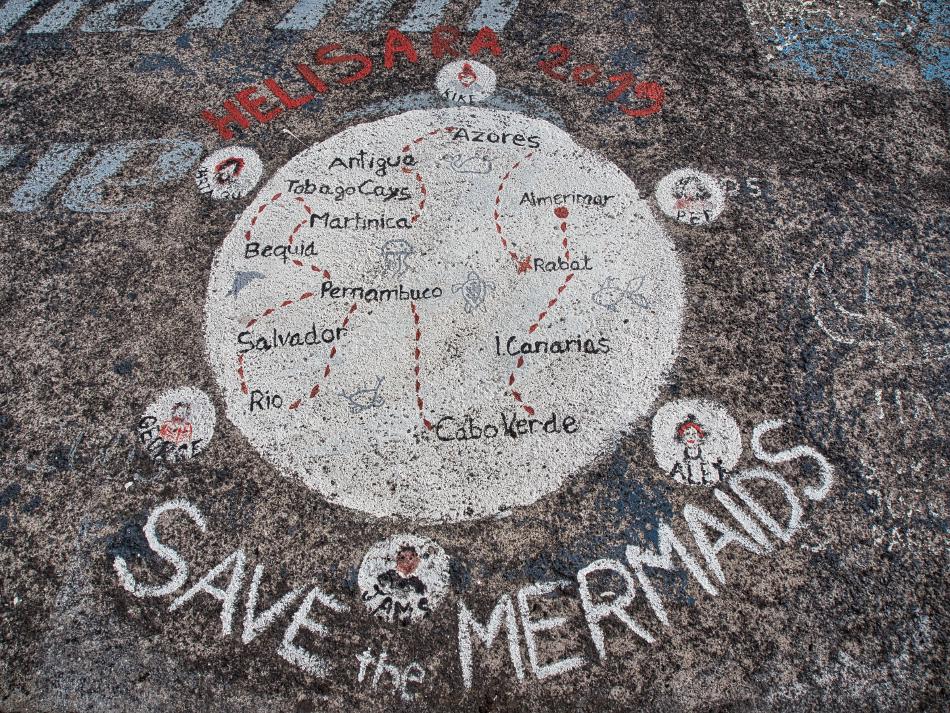 HELISARA 2019
KIKE
Azores
Antigua
Almerimar
PEF
Tobago Cays
Martinica
Bequia
Rabat
Pernambuco
Salvador
I.Canarias
Rio
Cabo Verde
GEORGE
ALEX
JAMS
SAVE the MERMAIDS